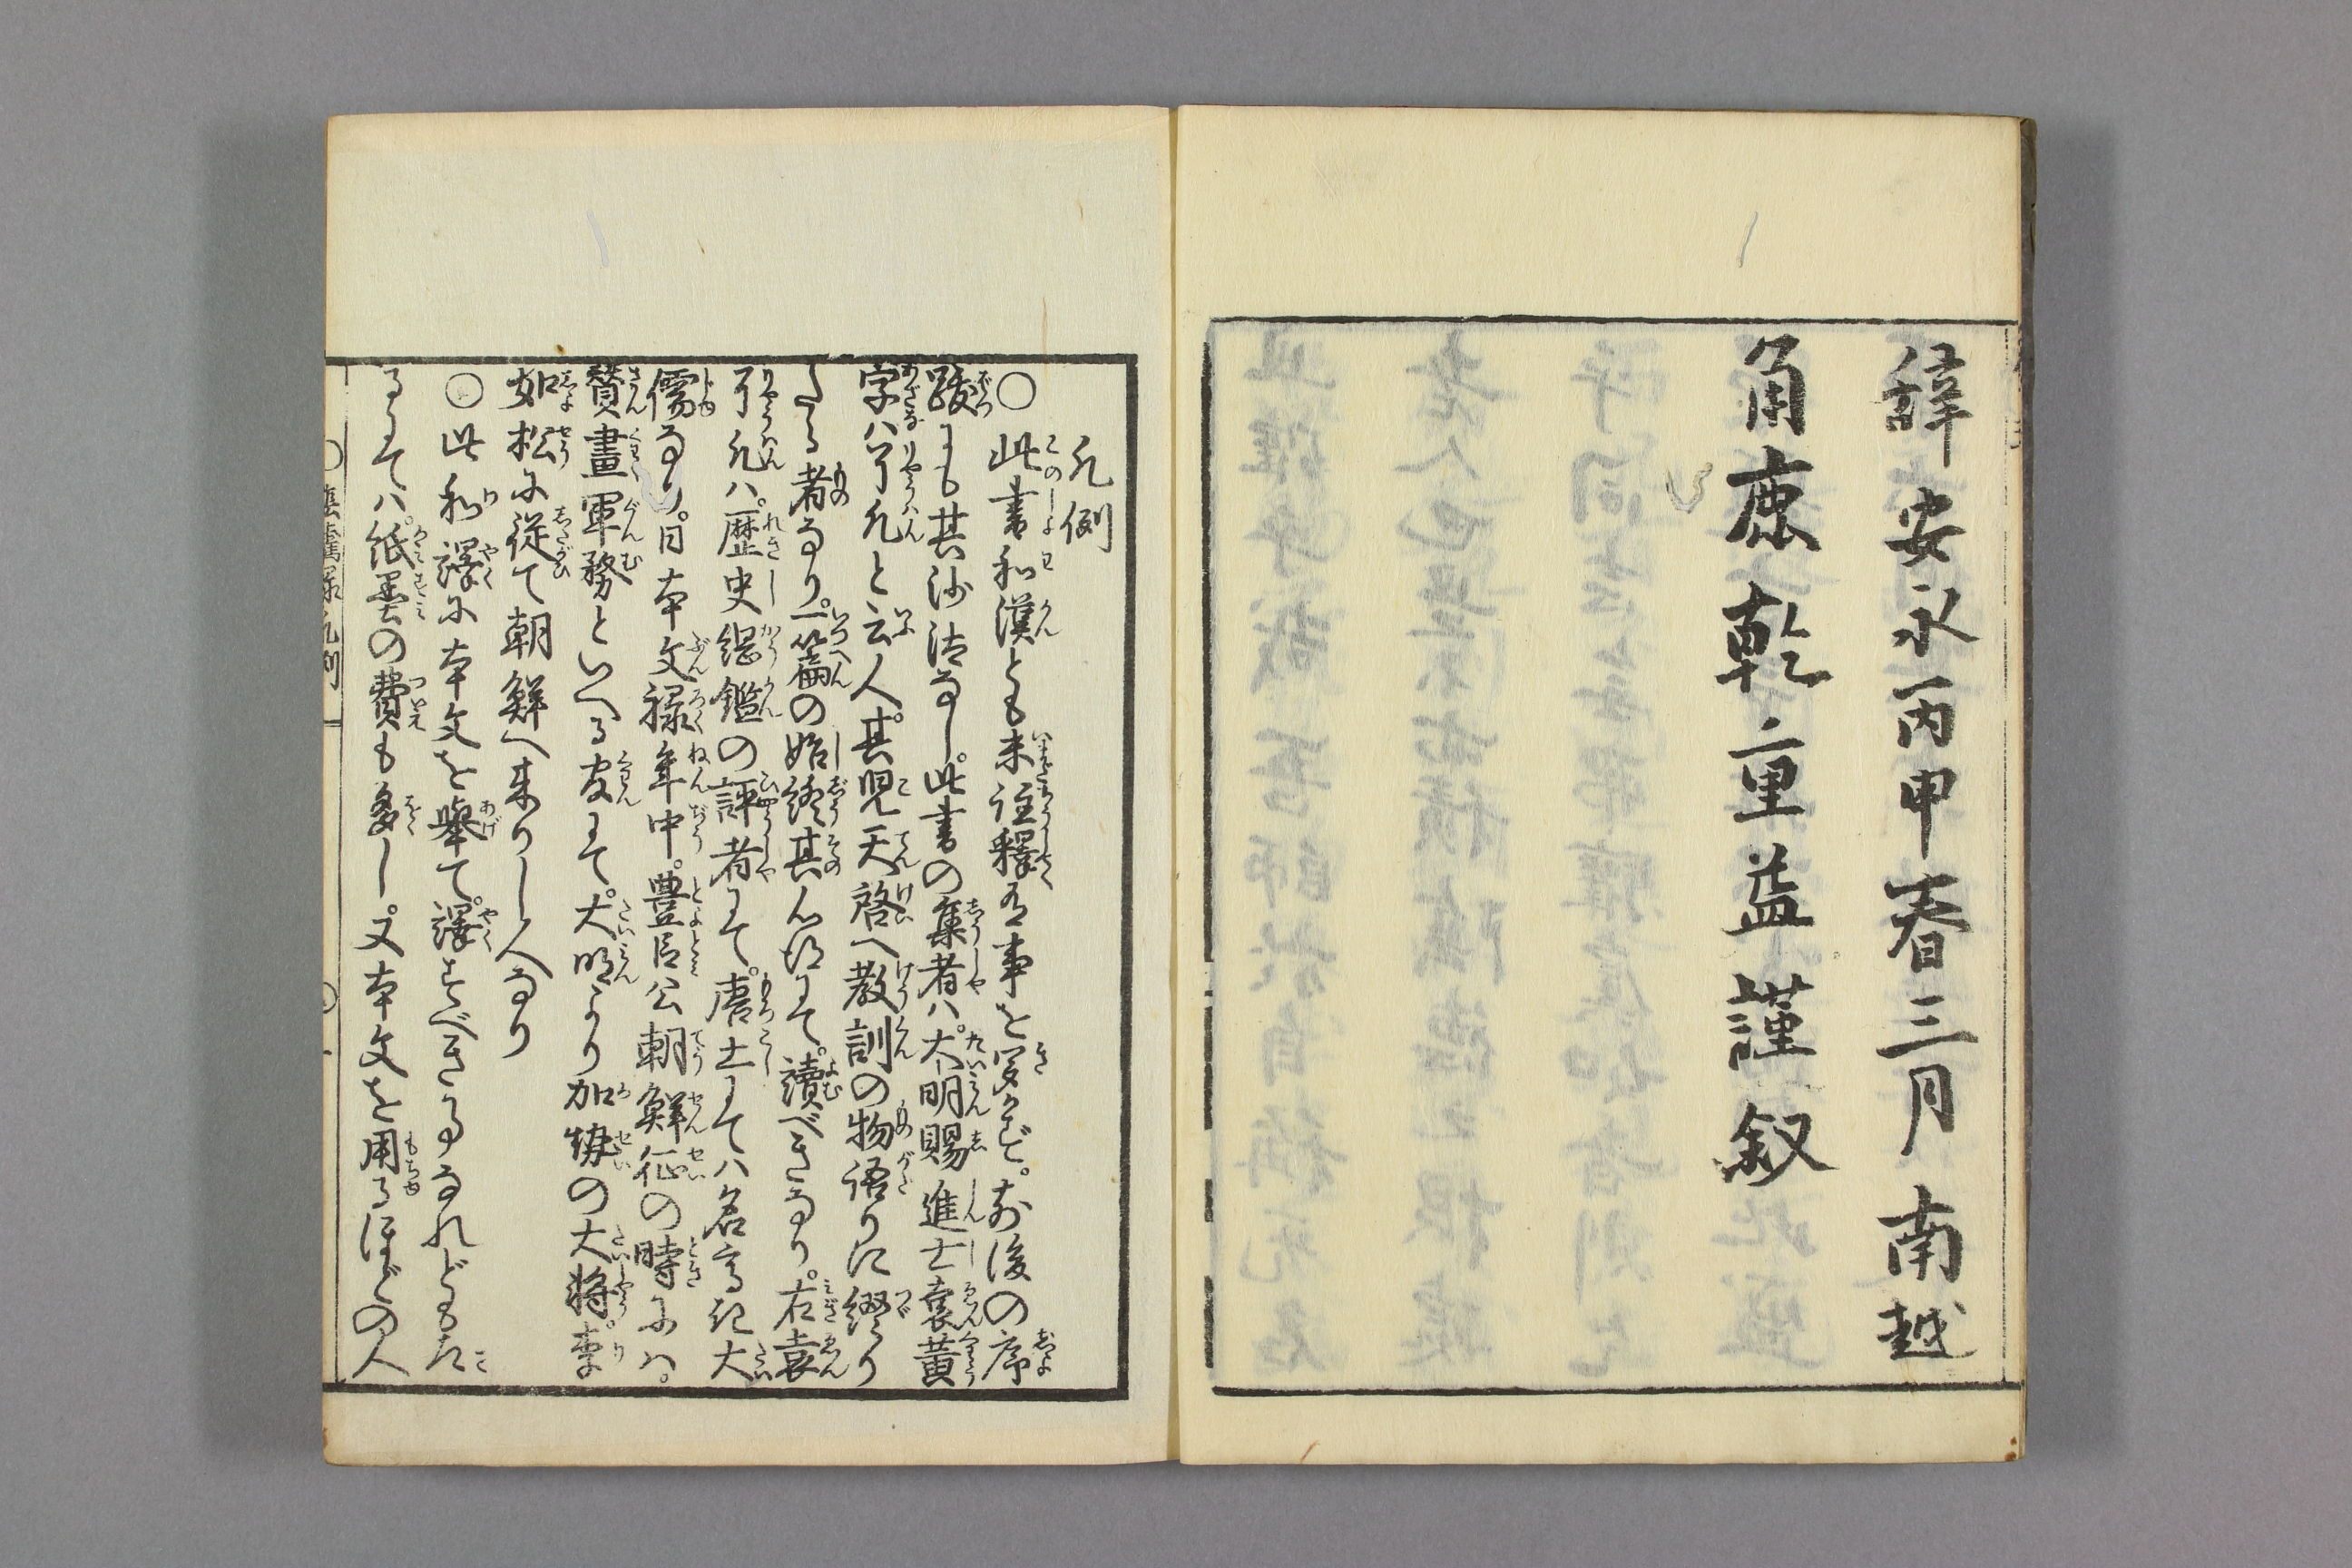 辭安永丙申春三月南越
角鹿乾重益謹敘
凡例
○此書和漢とも未註釋有事を聞かず。前後の序
跋にも其沙汰なし。此書の集者ハ。大明賜進士袁黃
字ハ了凡と云人。其児天啓へ教訓の物語りに綴り
たる者なり。一篇の始終其心得にて。讀べきなり。右袁
了凡ハ。歴史綱鑑の評者にて。唐土にてハ名高き大
儒なり。日本文禄年中。豊臣公朝鮮征の時にハ。
賛畫軍務といへる官にて。大明より加勢の大将。李
如松に從て朝鮮へ來りし人なり
○此和譯に本文を擧て。譯すべきことなれどもこ
るにてハ。紙墨の費も多し。又本文を用るほどの人
凡例